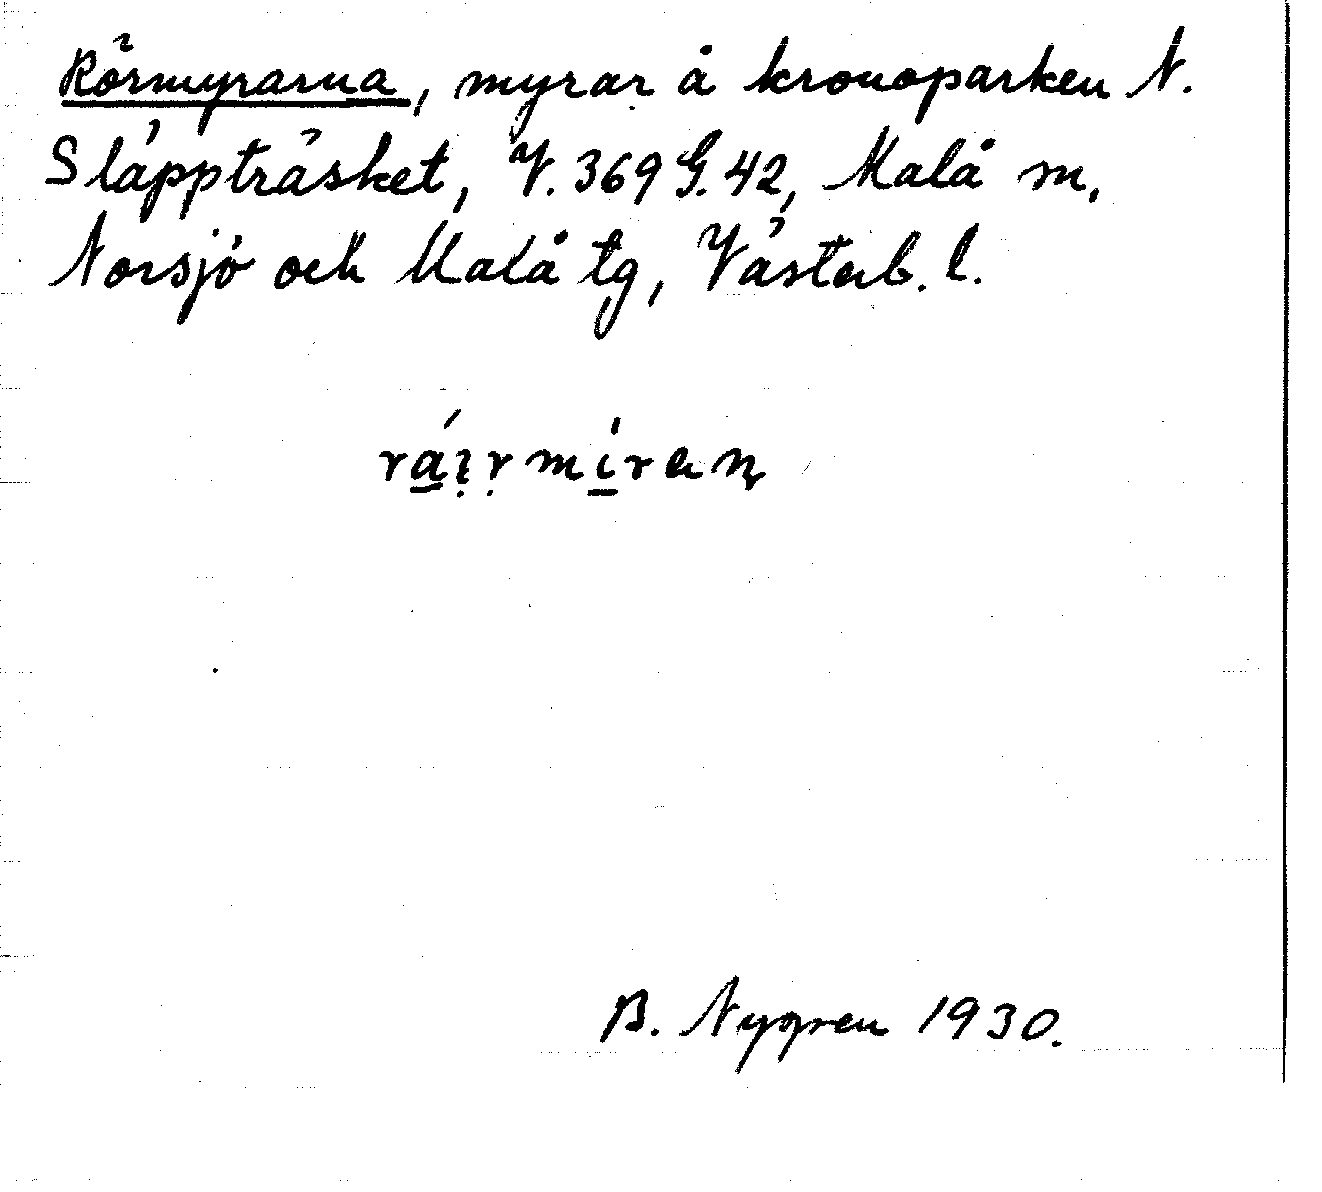 Rörmyrarna, myrar å kronoparken N.
Släppträsket, V. 369 G. 42, Malå m,
Norsjö och Malå tg, Västerb. l.
B. Nygren 1930.